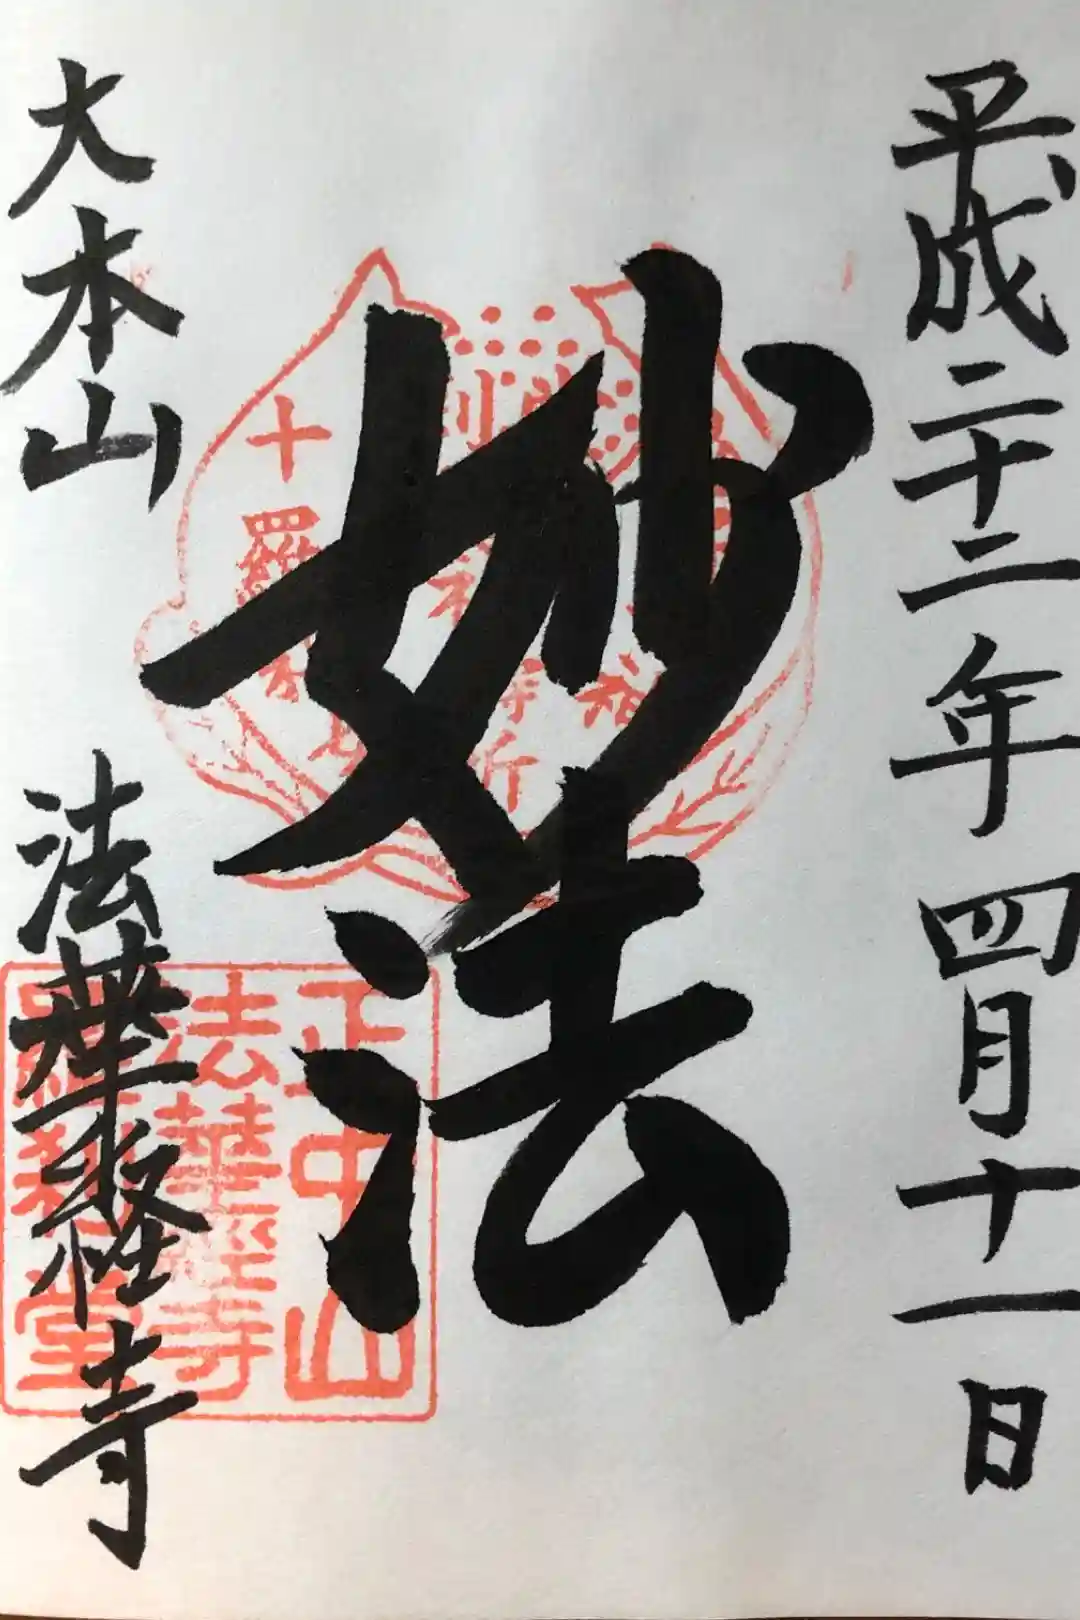 平成二十二年四月十一日
妙法
十羅
正中山
法華経寺
羅刹堂
大本山 法華経寺